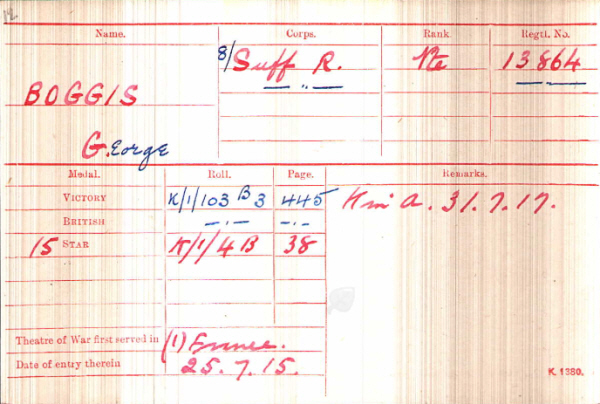 12
Name. Corps. Rank. Regtl. No.
BOGGIS 8/ Suff R. Pte 13864
— " — — —
George
Medal. Roll. Page. Remarks.
VICTORY K/1/103 B 3 445 K in A. 31.7.17.
BRITISH — " — — " —
15 STAR K/1/4 B 38
Theatre of War first served in (1) France.
Date of entry therein 25.7.15.
K. 1380.